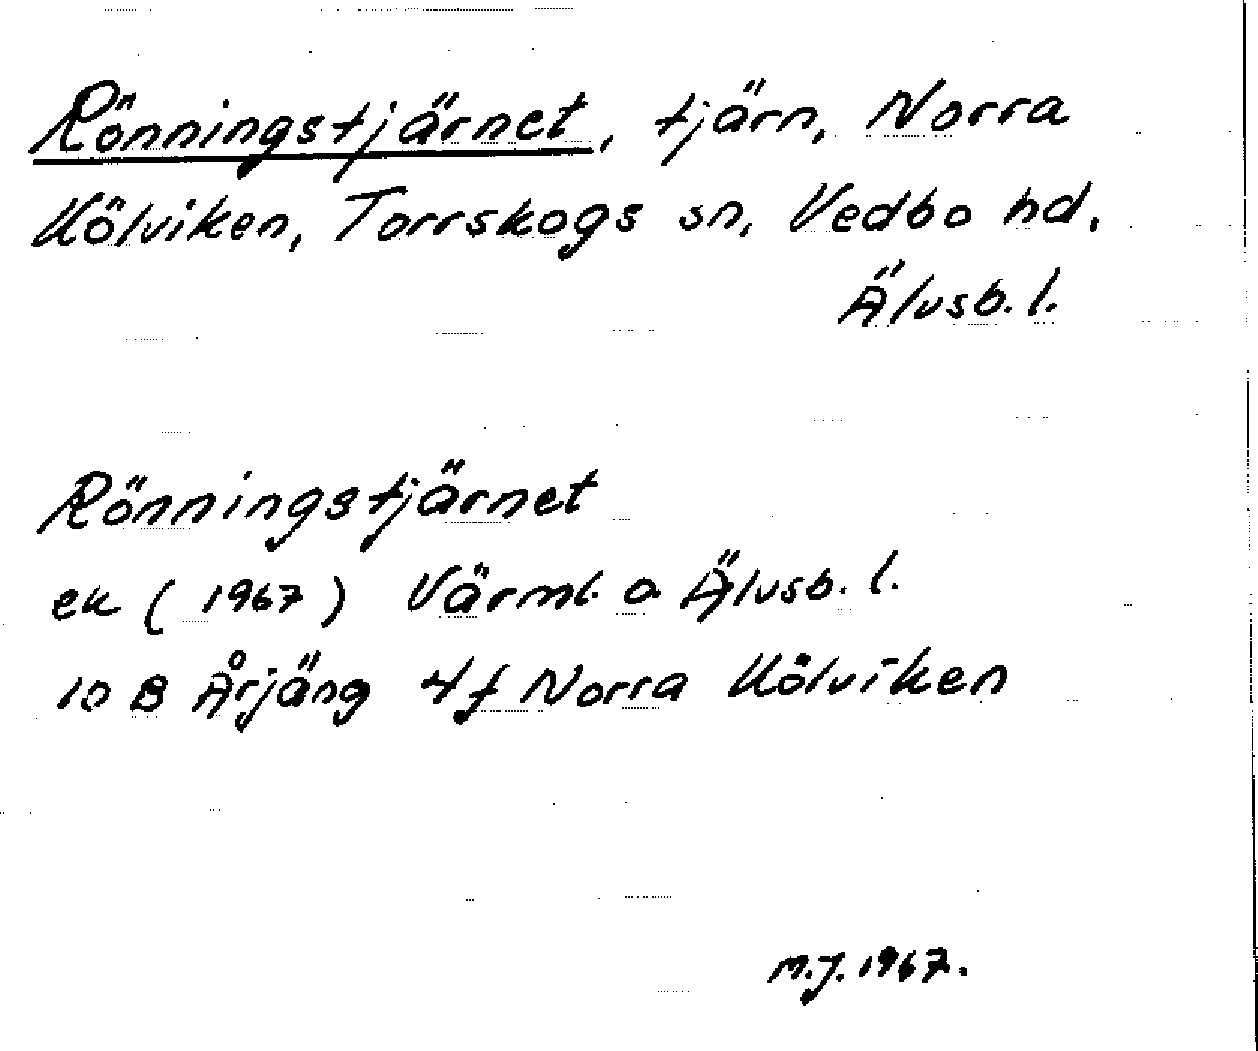 Rönningstjärnet, tjärn, Norra
Kölviken, Torrskogs sn, Vedbo hd,
Älvsb. l.
Rönningstjärnet
ek (1967) Värml. o Älvsb. l.
10 B Årjäng 4f Norra Kölviken
M.J. 1967.